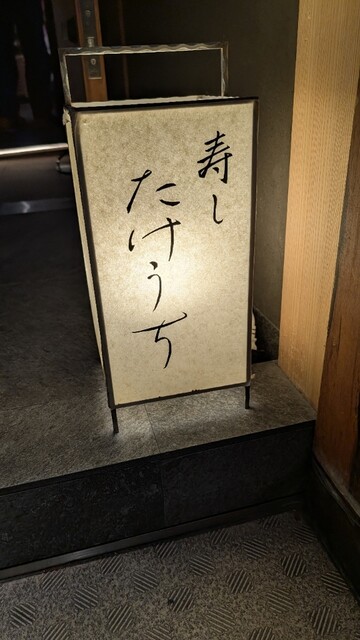 寿し
たけうち